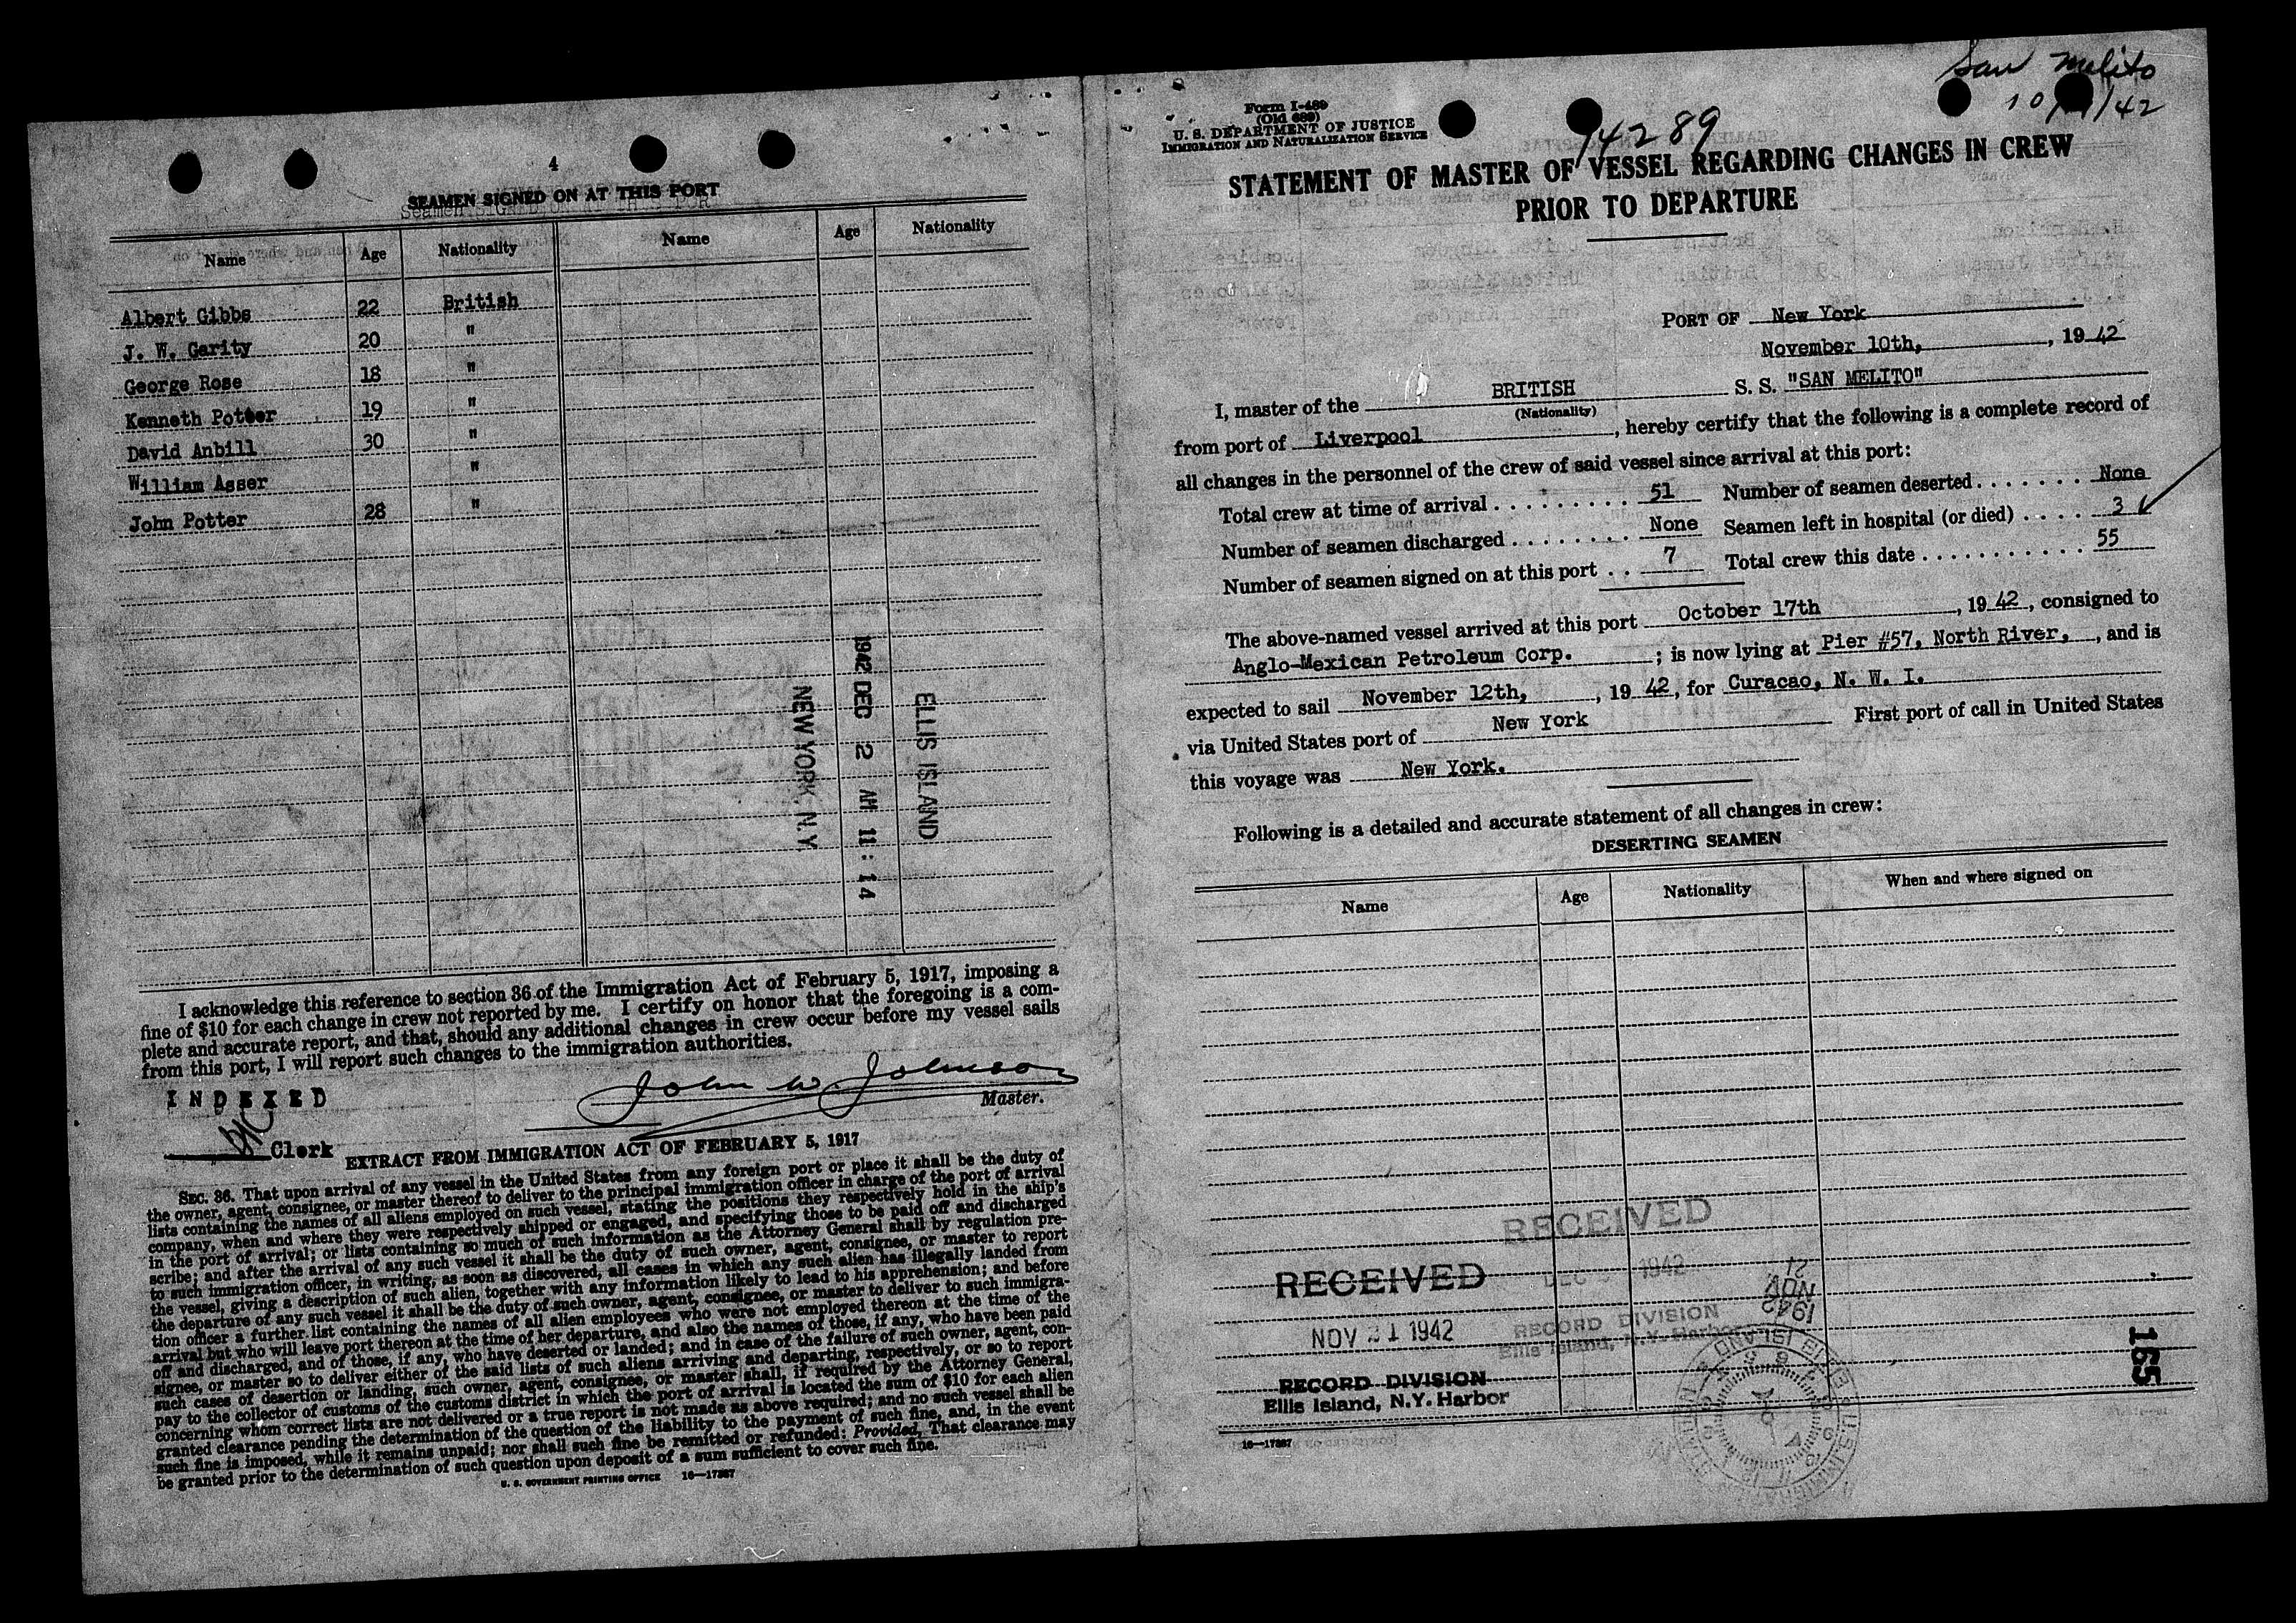 4
SEAMEN SIGNED ON AT THIS PORT
Name Age Nationality Name Age Nationality
Albert Gibbs 22 British
J. W. Garity 20 "
George Rose 18 "
Kenneth Potter 19 "
David Anbill 30 "
William Asser "
John Potter 28 "
ELLIS ISLAND
1942 DEC 2 AM 11:14
NEW YORK, N.Y.
I acknowledge this reference to section 36 of the Immigration Act of February 5, 1917, imposing a
fine of $10 for each change in crew not reported by me. I certify on honor that the foregoing is a com-
plete and accurate report, and that, should any additional changes in crew occur before my vessel sails
from this port, I will report such changes to the immigration authorities.
John W Johnson
Master.
INDEXED
Clerk
EXTRACT FROM IMMIGRATION ACT OF FEBRUARY 5, 1917
SEC. 36. That upon arrival of any vessel in the United States from any foreign port or place it shall be the duty of
the owner, agent, consignee, or master thereof to deliver to the principal immigration officer in charge of the port of arrival
lists containing the names of all aliens employed on such vessel, stating the positions they respectively hold in the ship's
company, when and where they were respectively shipped or engaged, and specifying those to be paid off and discharged
in the port of arrival; or lists containing so much of such information as the Attorney General shall by regulation pre-
scribe; and after the arrival of any such vessel it shall be the duty of such owner, agent, consignee, or master to report
to such immigration officer, in writing, as soon as discovered, all cases in which any such alien has illegally landed from
the vessel, giving a description of such alien, together with any information likely to lead to his apprehension; and before
the departure of any such vessel it shall be the duty of such owner, agent, consignee, or master to deliver to such immigra-
tion officer a further list containing the names of all alien employees who were not employed thereon at the time of the
arrival but who will leave port thereon at the time of her departure, and also the names of those, if any, who have been paid
off and discharged, and of those, if any, who have deserted or landed; and in case of the failure of such owner, agent, con-
signee, or master so to deliver either of the said lists of such aliens arriving and departing, respectively, or so to report
such cases of desertion or landing, such owner, agent, consignee, or master shall, if required by the Attorney General,
pay to the collector of customs of the customs district in which the port of arrival is located the sum of $10 for each alien
concerning whom correct lists are not delivered or a true report is not made as above required; and no such vessel shall be
granted clearance pending the determination of the question of the liability to the payment of such fine, and, in the event
such fine is imposed, while it remains unpaid; nor shall such fine be remitted or refunded: Provided, That clearance may
be granted prior to the determination of such question upon deposit of a sum sufficient to cover such fine.
U. S. GOVERNMENT PRINTING OFFICE 16—17887
San Melito
10/ /42
14289
Form I-489
(Old 689)
U. S. DEPARTMENT OF JUSTICE
IMMIGRATION AND NATURALIZATION SERVICE
STATEMENT OF MASTER OF VESSEL REGARDING CHANGES IN CREW
PRIOR TO DEPARTURE
PORT OF New York
November 10th, , 19 42
I, master of the BRITISH S. S. "SAN MELITO"
(Nationality)
from port of Liverpool , hereby certify that the following is a complete record of
all changes in the personnel of the crew of said vessel since arrival at this port:
Total crew at time of arrival . . . . . . . . . 51 Number of seamen deserted . . . . . . . None
Number of seamen discharged . . . . . . . . None Seamen left in hospital (or died) . . . . 3
Number of seamen signed on at this port . . 7 Total crew this date . . . . . . . . . . . 55
The above-named vessel arrived at this port October 17th , 19 42 , consigned to
Anglo-Mexican Petroleum Corp. ; is now lying at Pier #57, North River, , and is
expected to sail November 12th, , 19 42 , for Curacao, N. W. I.
via United States port of New York First port of call in United States
this voyage was New York.
Following is a detailed and accurate statement of all changes in crew:
DESERTING SEAMEN
Name Age Nationality When and where signed on
RECEIVED
DEC 1942
RECORD DIVISION
Ellis Island, N.Y. Harbor
RECEIVED
NOV 21 1942
RECORD DIVISION
Ellis Island, N.Y. Harbor
21
NOV
1942
165
16—17887